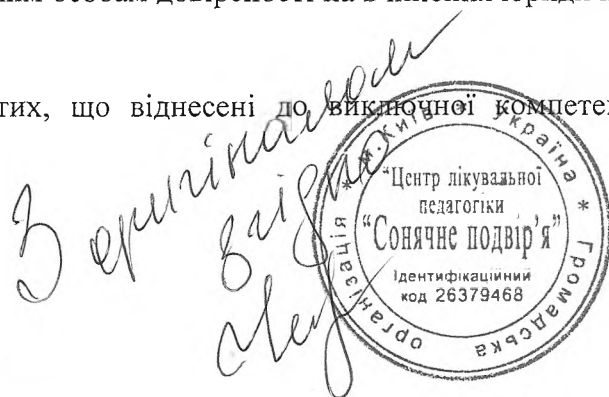 особам довіреності на
тих, що віднесені до виключної компетен
З оригіналом
згідно
* м. Київ * Україна * Громадська організація
"Центр лікувальної
педагогіки
“Сонячне подвір’я”
Ідентифікаційний
код 26379468